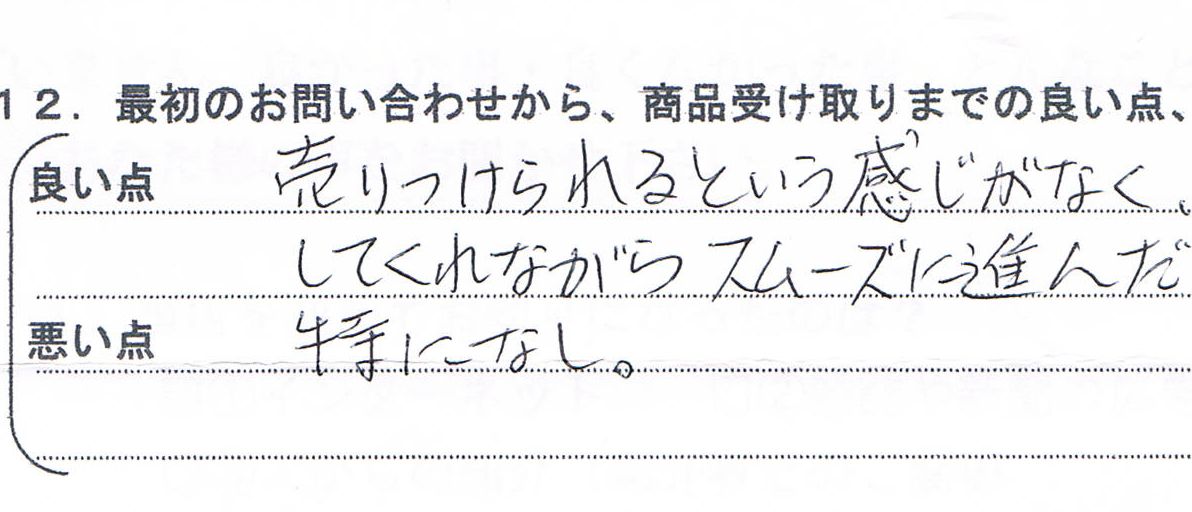 12. 最初のお問い合わせから、商品受け取りまでの良い点、
良い点 売りつけられるという感じがなく、
してくれながらスムーズに進んだ
悪い点 特になし。